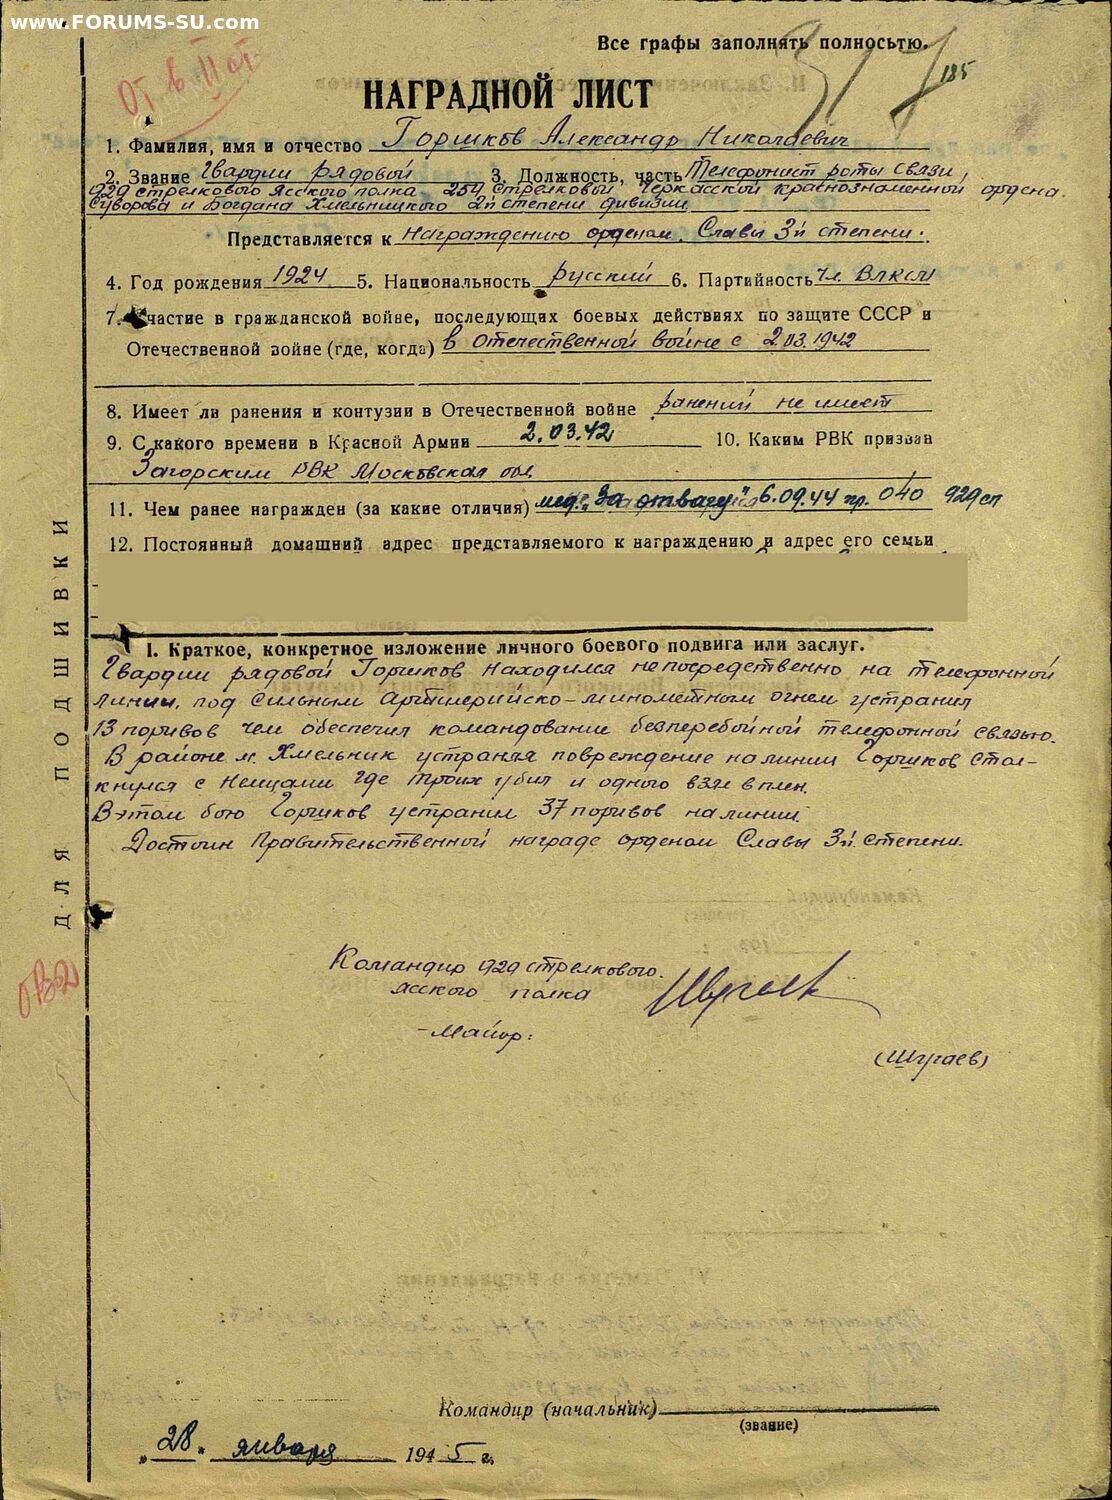 www.FORUMS-SU.com
Все графы заполнять полносьтю.
185
НАГРАДНОЙ ЛИСТ
1. Фамилия, имя и отчество Горшков Александр Николаевич
2. Звание Гвардии рядовой 3. Должность, часть Телефонист роты связи,
929 стрелкового Ясского полка 254 Стрелковой Черкасской краснознаменной ордена
Суворова и Богдана Хмельницкого 2й степени дивизии
Представляется к награждению орденом Славы 3й степени.
4. Год рождения 1924 5. Национальность русский 6. Партийность Чл. ВЛКСМ
7. Участие в гражданской войне, последующих боевых действиях по защите СССР и
Отечественной войне (где, когда) в Отечественной войне с 2.03.1942
8. Имеет ли ранения и контузии в Отечественной войне ранений не имеет
9. С какого времени в Красной Армии 2.03.42 10. Каким РВК призван
Загорским РВК Московская обл.
11. Чем ранее награжден (за какие отличия) мед. "За отвагу" 6.09.44 пр. 040 929 сп
12. Постоянный домашний адрес представляемого к награждению и адрес его семьи
I. Краткое, конкретное изложение личного боевого подвига или заслуг.
Гвардии рядовой Горшков находился непосредственно на телефонной
линии, под сильным Артиллерийско-минометным огнем устранил
13 порывов чем обеспечил командование безперебойной телефонной связью.
В районе м. Хмельник устраняя повреждение на линии Горшков стол-
кнулся с Немцами где троих убил и одного взял в плен.
В этом бою Горшков устранил 37 порывов на линии.
Достоин Правительственной награде орденом Славы 3й степени.
Командир 929 стрелкового
Ясского полка
-Майор:
(Шугаев)
Командир (начальник)
(звание)
"28" января 1945 г.
ДЛЯ ПОДШИВКИ